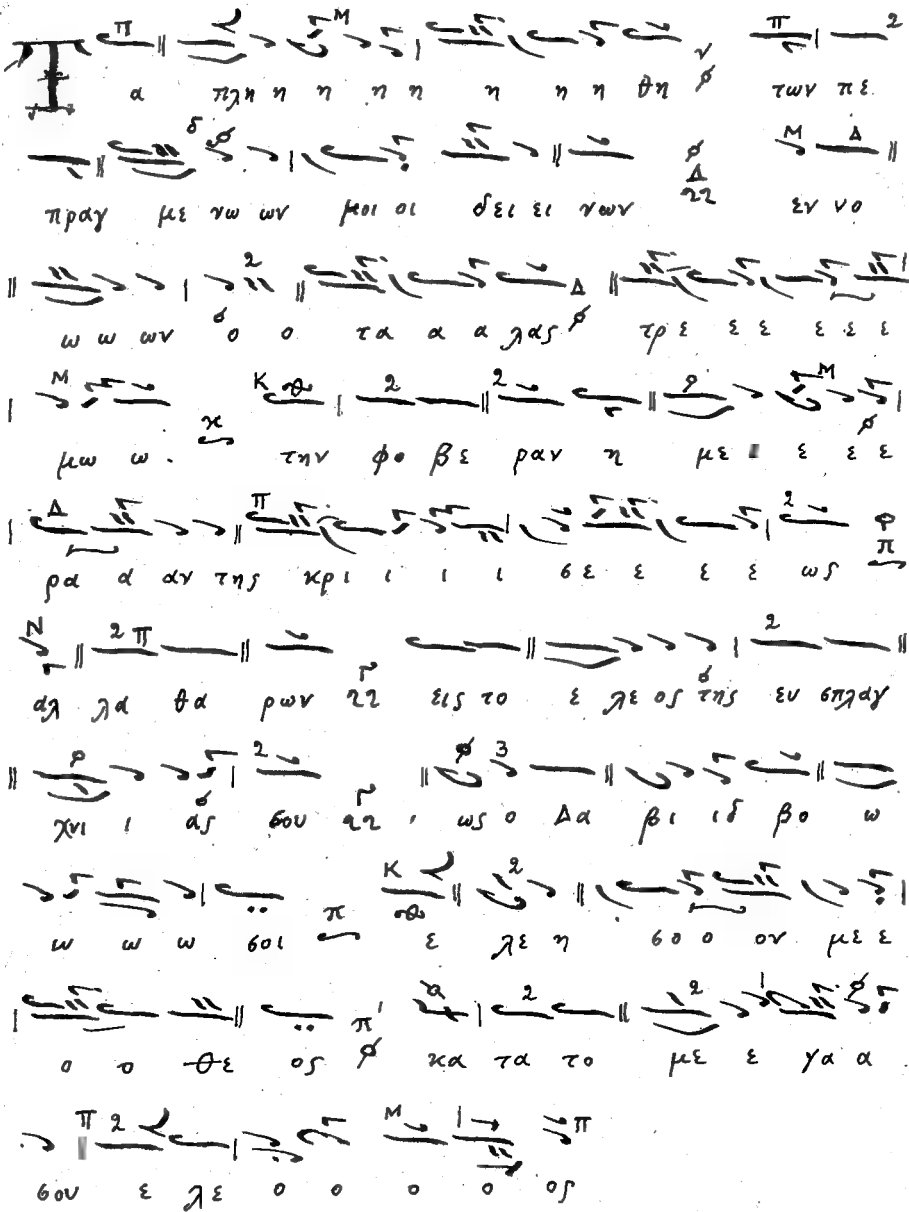 Τ α πλη η η η η η η η θη των πε
πραγ με νω ων μοι οι δει ει νων εν νο
ω ω ων ο ο τα α α λας τρε ε ε ε ε ε
μω ω την φο βε ραν η με ε ε ε
ρα α αν της κρι ι ι ι σε ε ε ε ως
αλ λα θα ρων εις το ε λε ος της ευ σπλαγ
χνι ι ας σου ως ο Δα βι ιδ βο ω
ω ω ω σοι ε λε η σο ο ον με ε
ο ο θε ος κα τα το με ε γα α
σου ε λε ο ο ο ο ος